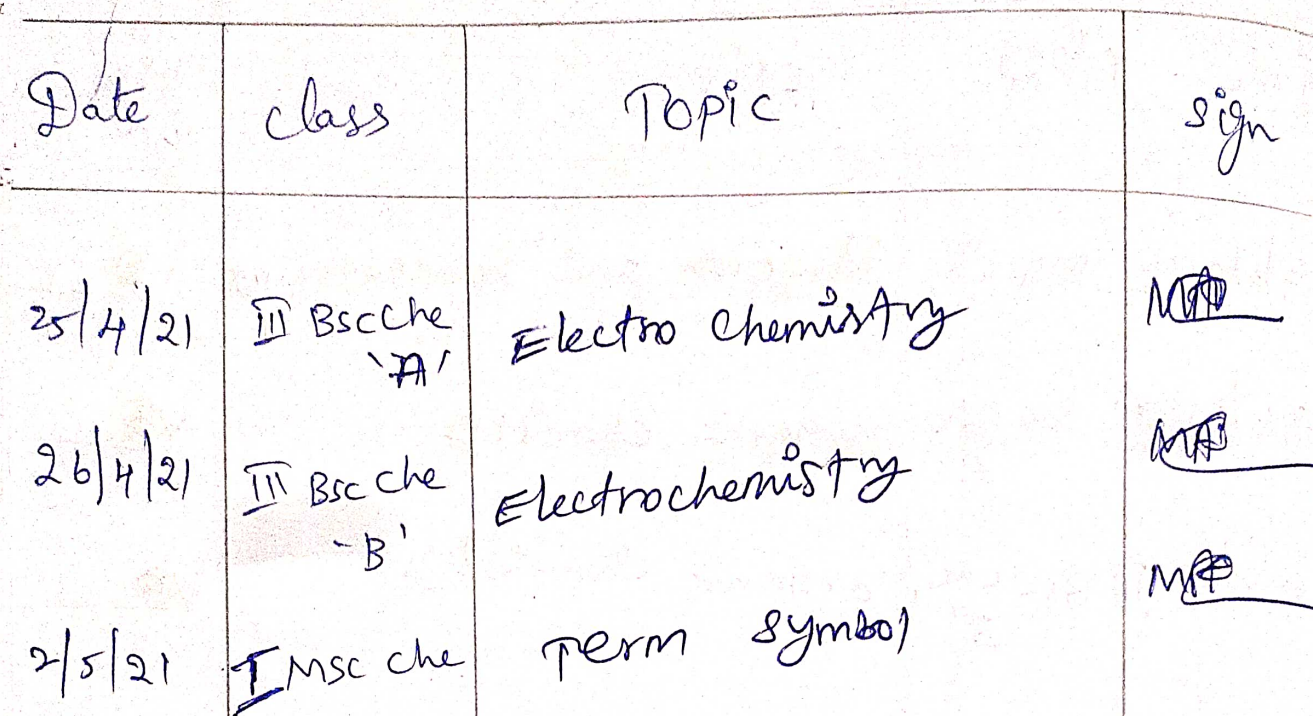 Date class Topic sign
25/4/21 III Bsc Che Electro Chemistry
'A'
26/4/21 III Bsc Che Electrochemistry
-B'
2/5/21 I Msc Che Term Symbol